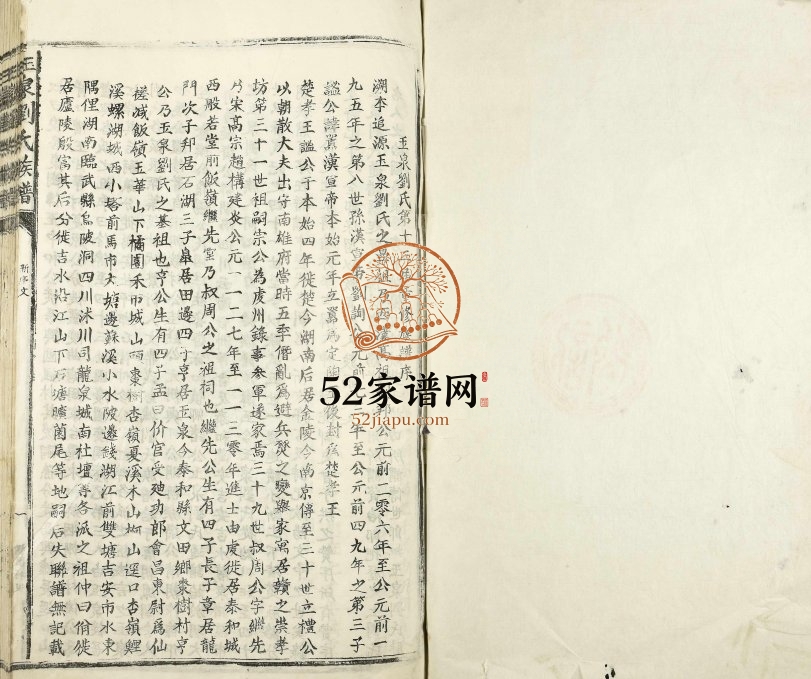 玉泉劉氏第十
溯本追源玉泉劉氏之鼻祖
公元前二零六年至公元前一
九五年之第八世孫漢宣帝劉詢公元前
年至公元前四九年之第三子
謚公諱囂漢宣帝本始元年立囂為定陶
後封為楚孝王
楚孝王謚公于本始四年徙楚今湖南后居金陵今南京傳至三十世立禮公
以朝散大夫出守南雄府當時五季僭亂為避兵燹之變舉家寓居贛之崇孝
坊第三十一世祖嗣宗公為虔州錄事参軍遂家焉三十九世叔周公字繼先
宋高宗趙構建炎公元一一二七年至一一三零年進士由虔徙居泰和城
西般若堂前飯嶺繼先堂乃叔周公之祖祠也繼先公生有四子長子章居龍
門次子邦居石湖三子皐居田邊四子亨居玉泉今泰和縣文田鄉棗樹村亨
公乃玉泉劉氏之基祖也亨公生有四子孟曰价官受廸功郎會昌東尉為仙
槎减飯嶺玉華山下橘園禾市城山 棗樹杏嶺夏溪木山 山邏口杏嶺鯉
溪螺湖城西小塔前馬市大塘邊蘇溪小水陂邊綾湖江前雙塘吉安市水東
隅俚湖南臨武縣烏陂洞四川沭川司龍泉城南社壇等各派之祖仲曰 徙
居廬陵殷富其后分徙吉水沿江山下 塘曠菌尾等地嗣后失聯譜無記載
玉泉劉氏族譜
新序文
一
52家谱网
52jiapu.com